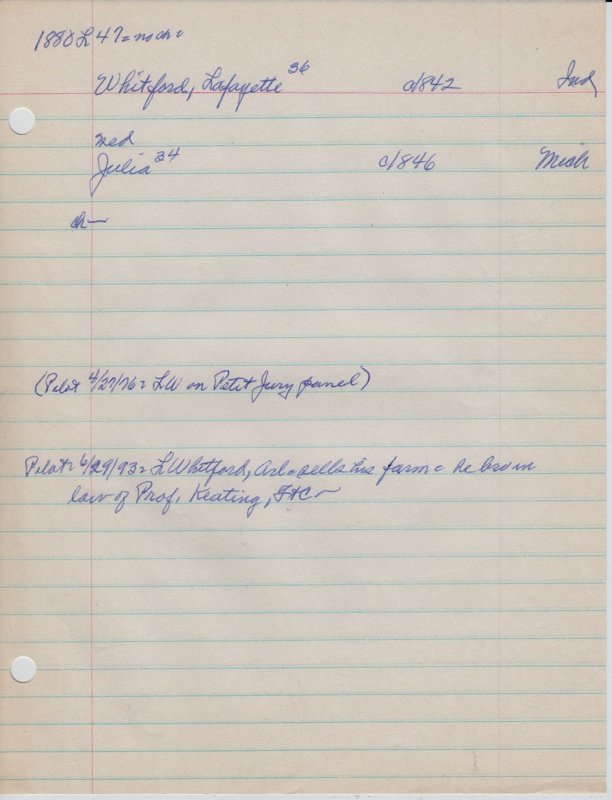 1880 L 47 = no ch =
Whitford, Lafayette 36 c1842 Ind
med
Julia 34 c1846 Mich
ch—
(Pilot 4/27/76 = LW on Petit Jury panel)
Pilot = 6/29/93 = L Whitford, Arl = sells his farm = he bro in
law of Prof. Keating, FtC —